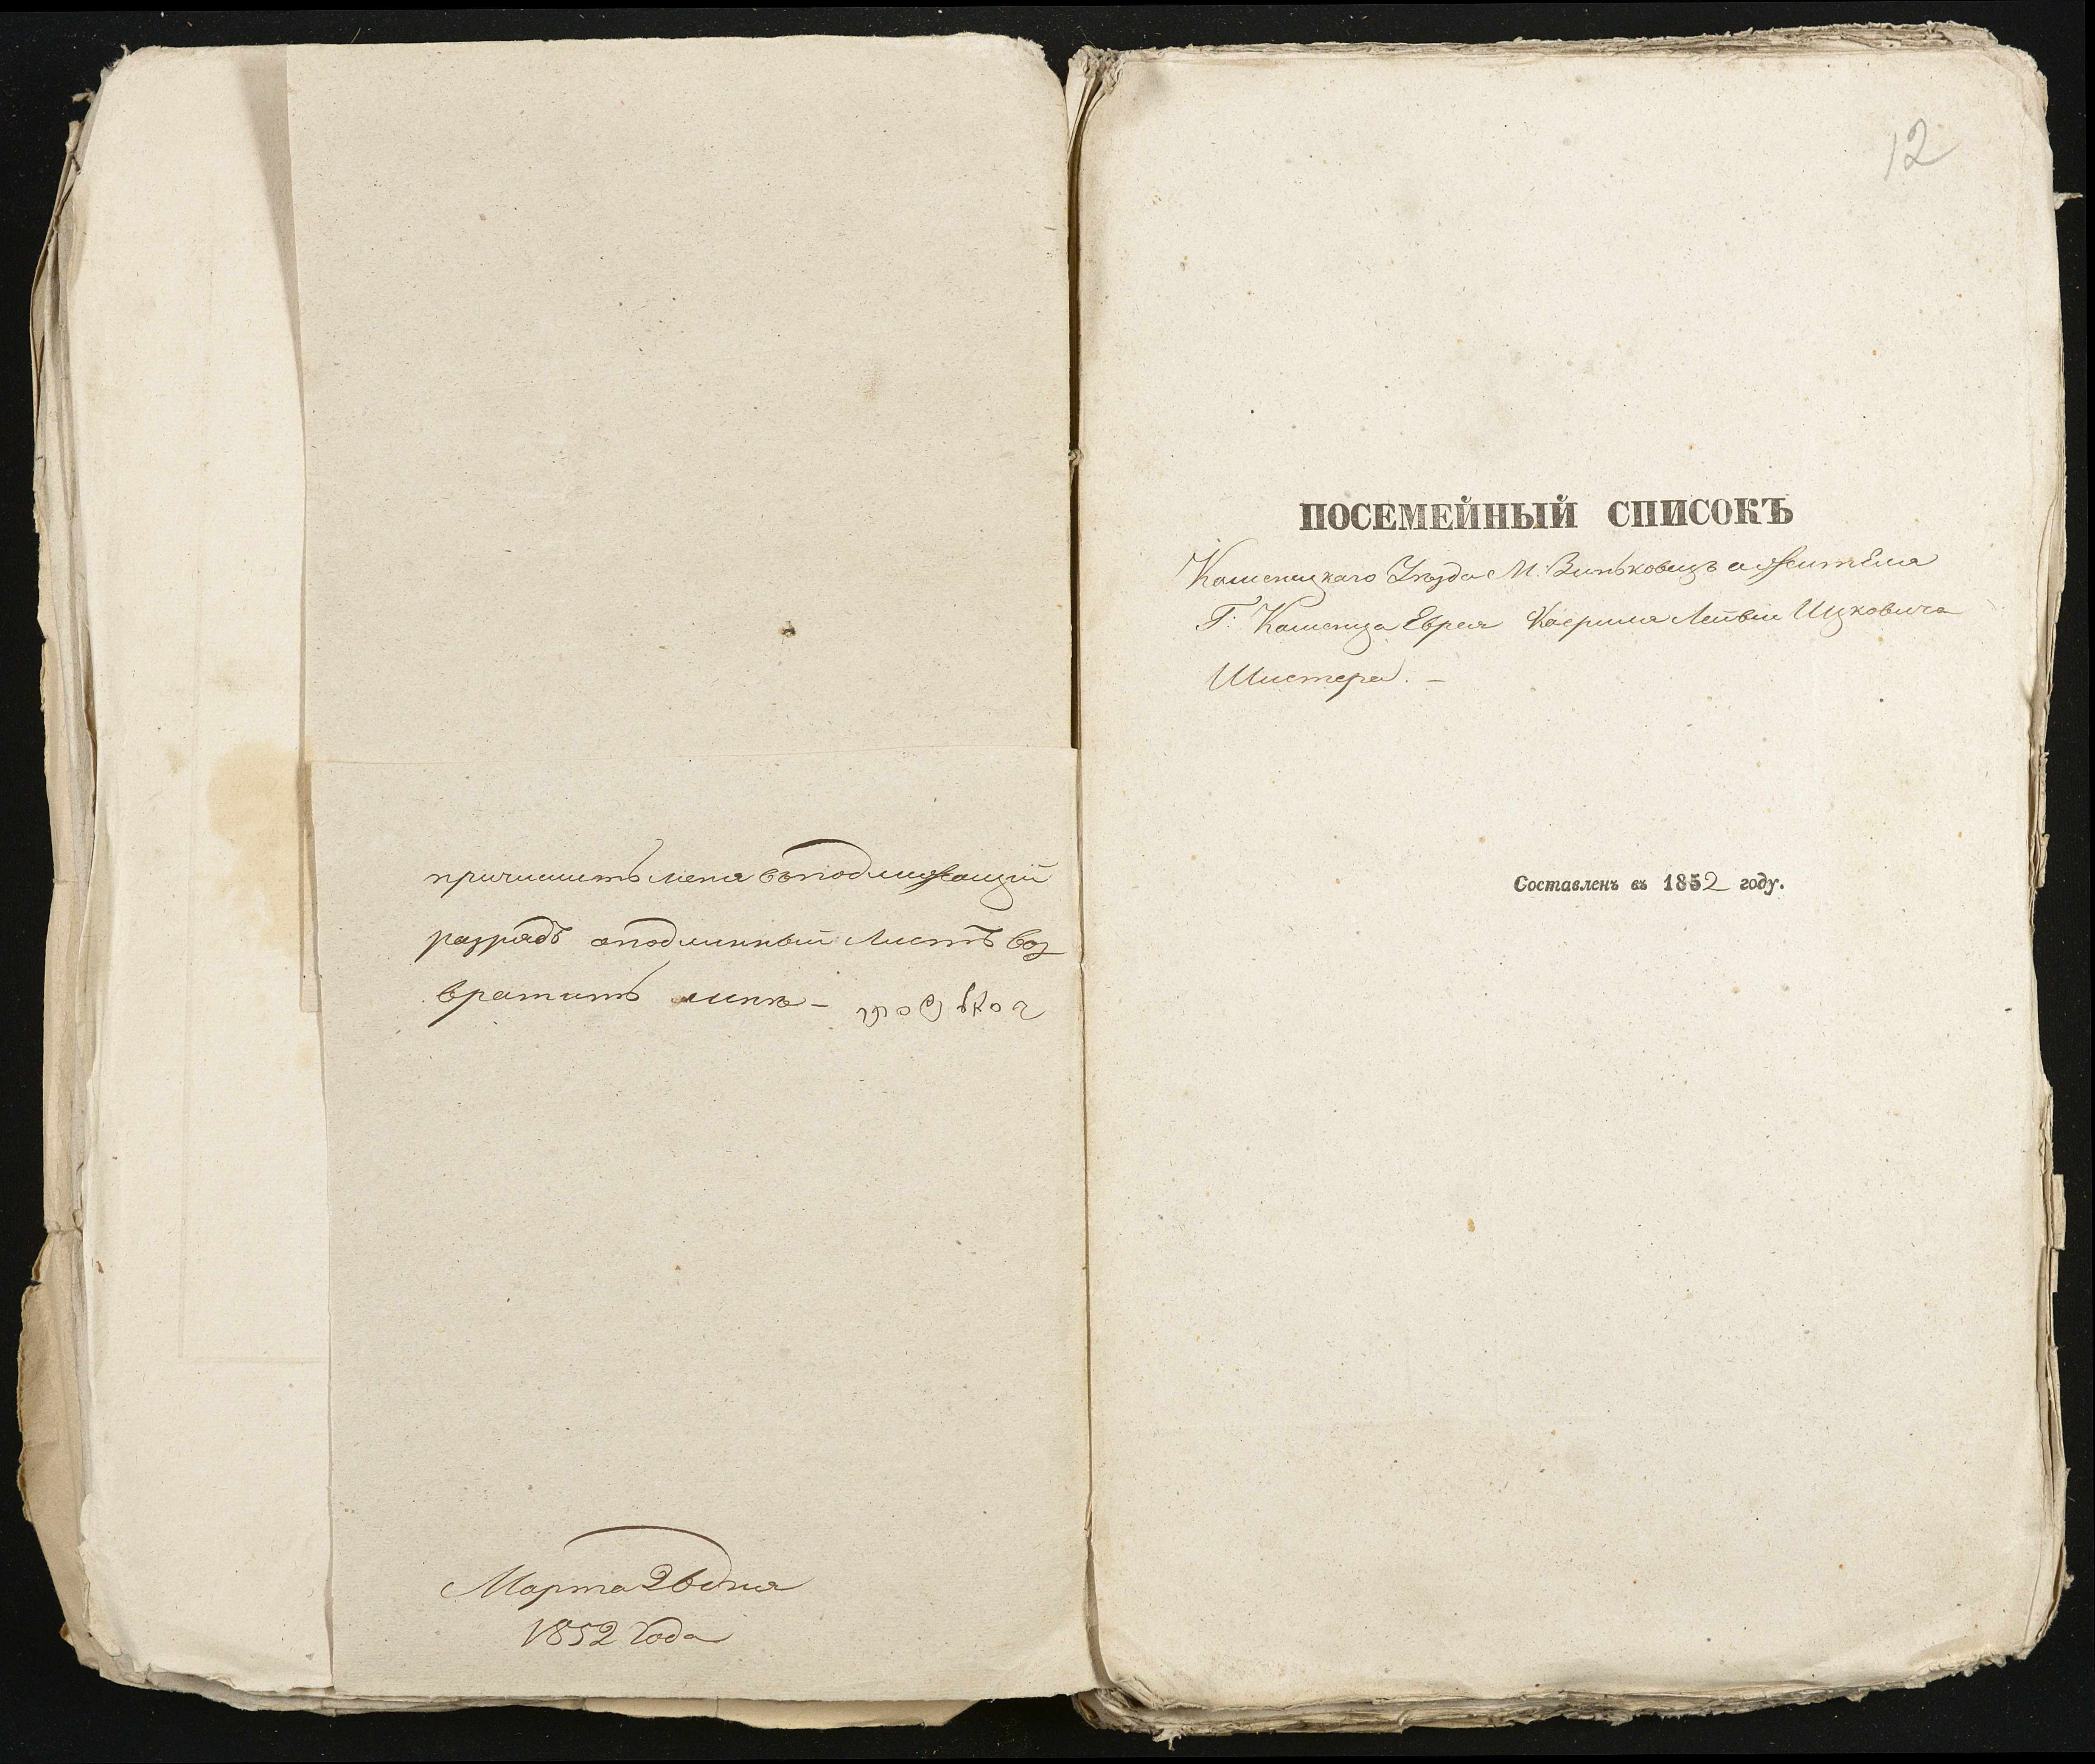 причислить меня въ подлежащій
разрядъ а подлинный Листъ воз
вратить мнѣ –
Марта 26 дня
1852 Года
12
ПОСЕМЕЙНЫЙ СПИСОКЪ
Каменецкаго Уѣзда М. Виньковецъ а жителя
Г. Каменца Еврея Лейбы Ицковича
Шистера. –
Составленъ въ 1852 году.